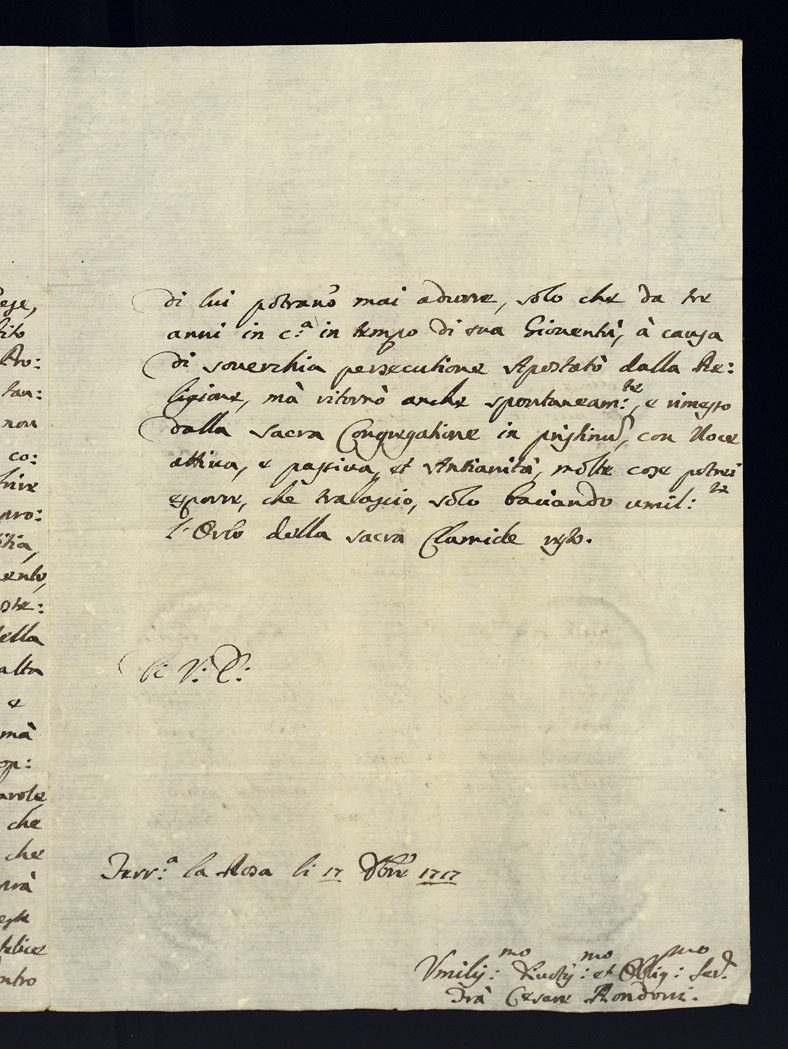 ege,
sito
Pro:
tan:
non
co:
pro:
tia,
ento,
ste:
della
alta
e
mà
op:
arole
che
che
felice
ntro
di lui potrano mai adurre, solo che da tre
anni in c.ª in tempo di sua Gioventù, à causa
di soverchia persecutione Apostatò dalla Re:
ligione, mà ritornò anche spontaneam:te, e rimesso
dalla sacra Congregatione in pristinu, con Voce
attiva, e passiva, et Antianità, molte cose potrei
esporre, che tralascio, solo baciando umil:te
l'Orlo della sacra Clamide
Di V: P:
Terr.ª la Rosa li 17 1717
Umiliss:mo Divotiss:mo et Oblig:mo Ser.
Frà Cesare Rondoni.